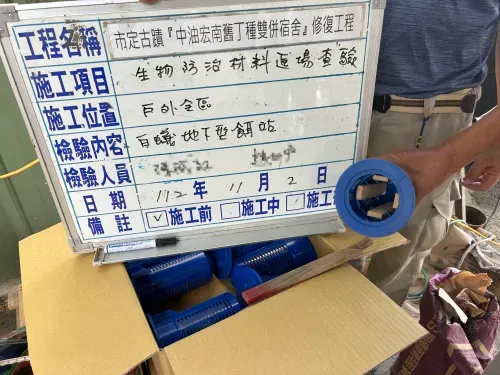 工程名稱 市定古蹟『中油宏南舊丁種雙併宿舍』修復工程
施工項目 生物防治材料進場查驗
施工位置 戶外全區
檢驗內容 白蟻地下型餌站
檢驗人員
日期 112年 11月 2日
備註 ✓施工前 施工中 施工